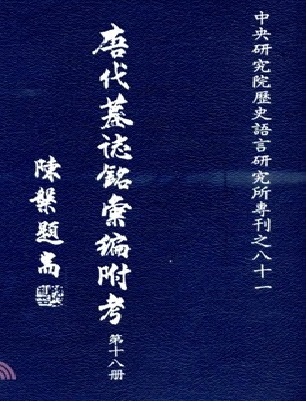 中央研究院歷史語言研究所專刊之八十一
唐代墓誌銘彙編附考
第十八冊
陳槃題耑